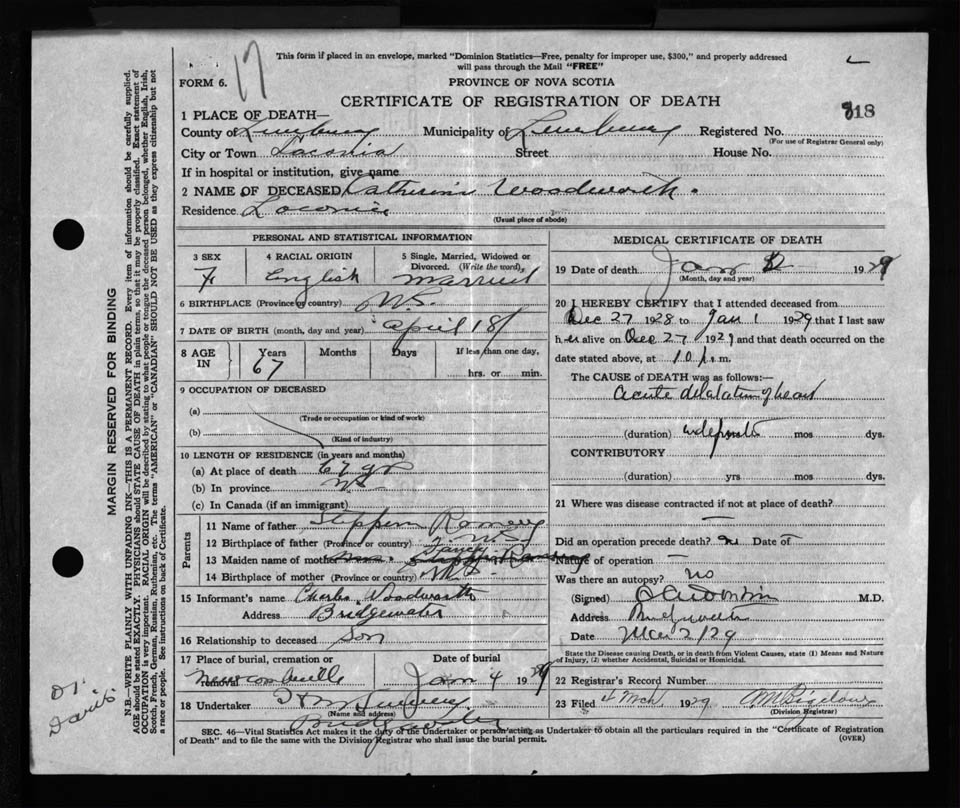 This form if placed in an envelope, marked "Dominion Statistics—Free, penalty for improper use, $300," and properly addressed
will pass through the Mail "FREE"
17
FORM 6.
PROVINCE OF NOVA SCOTIA
CERTIFICATE OF REGISTRATION OF DEATH
318
1 PLACE OF DEATH—
County of Lunenburg Municipality of Lunenburg Registered No.
(For use of Registrar General only)
City or Town Laconia Street House No.
If in hospital or institution, give name
2 NAME OF DECEASED Catherine Woodworth.
Residence Laconia
(Usual place of abode)
PERSONAL AND STATISTICAL INFORMATION
3 SEX 4 RACIAL ORIGIN 5 Single, Married, Widowed or Divorced. (Write the word)
F English Married
6 BIRTHPLACE (Province or country) N.S.
7 DATE OF BIRTH (month, day and year) April 18
8 AGE IN Years Months Days If less than one day,
67 hrs. or min.
9 OCCUPATION OF DECEASED
(a)
(Trade or occupation or kind of work)
(b)
(Kind of industry)
10 LENGTH OF RESIDENCE (in years and months)
(a) At place of death 67 yr
(b) In province NS
(c) In Canada (if an immigrant)
Parents
11 Name of father Ramey
12 Birthplace of father (Province or country) N.S.
13 Maiden name of mother
14 Birthplace of mother (Province or country) N.S.
15 Informant's name Charles Woodworth
Address Bridgewater
16 Relationship to deceased Son
17 Place of burial, cremation or removal Date of burial
Newcombville Jan 4 1929
18 Undertaker
(Name and address)
Bridgewater
MEDICAL CERTIFICATE OF DEATH
19 Date of death Jan 2 1929
(Month, day and year)
20 I HEREBY CERTIFY that I attended deceased from
Dec 27 1928 to Jan 1 1929 that I last saw
her alive on Dec 27 192 and that death occurred on the
date stated above, at 10 m.
The CAUSE of DEATH was as follows:—
Acute dilatation of heart
(duration) mos dys.
CONTRIBUTORY
(duration) yrs mos dys.
21 Where was disease contracted if not at place of death?
Did an operation precede death? no Date of
Nature of operation —
Was there an autopsy? no
(Signed) M.D.
Address Bridgewater
Date Mar 2/29
State the Disease causing Death, or in death from Violent Causes, state (1) Means and Nature
of Injury, (2) whether Accidental, Suicidal or Homicidal.
22 Registrar's Record Number
23 Filed 4 Mch 1929
(Division Registrar)
SEC. 46—Vital Statistics Act makes it the duty of the Undertaker or person acting as Undertaker to obtain all the particulars required in the "Certificate of Registration
of Death" and to file the same with the Division Registrar who shall issue the burial permit.
(OVER)
MARGIN RESERVED FOR BINDING
N.B.—WRITE PLAINLY WITH UNFADING INK—THIS IS A PERMANENT RECORD. Every item of information should be carefully supplied.
AGE should be stated EXACTLY. PHYSICIANS should STATE CAUSE OF DEATH in plain terms, so that it may be properly classified. Exact statement of
OCCUPATION is very important. RACIAL ORIGIN will be described by stating to what people or tongue the deceased person belonged, whether English, Irish,
Scotch, French, German, Russian, Ruthenian, etc. The terms "AMERICAN" or "CANADIAN" SHOULD NOT BE USED as they express citizenship but not
a race or people. See instructions on back of Certificate.
Dr.
Davis